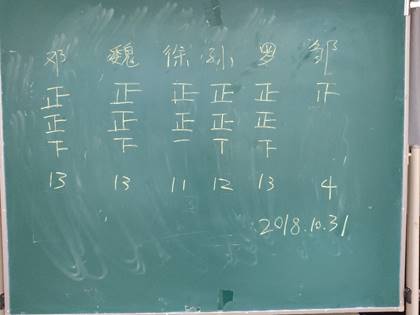 邓 魏 徐 孙 罗 邹
正 正 正 正 正 正
正 正 正 正 正
下 下 一 丅 下
13 13 11 12 13 4
2018.10.31